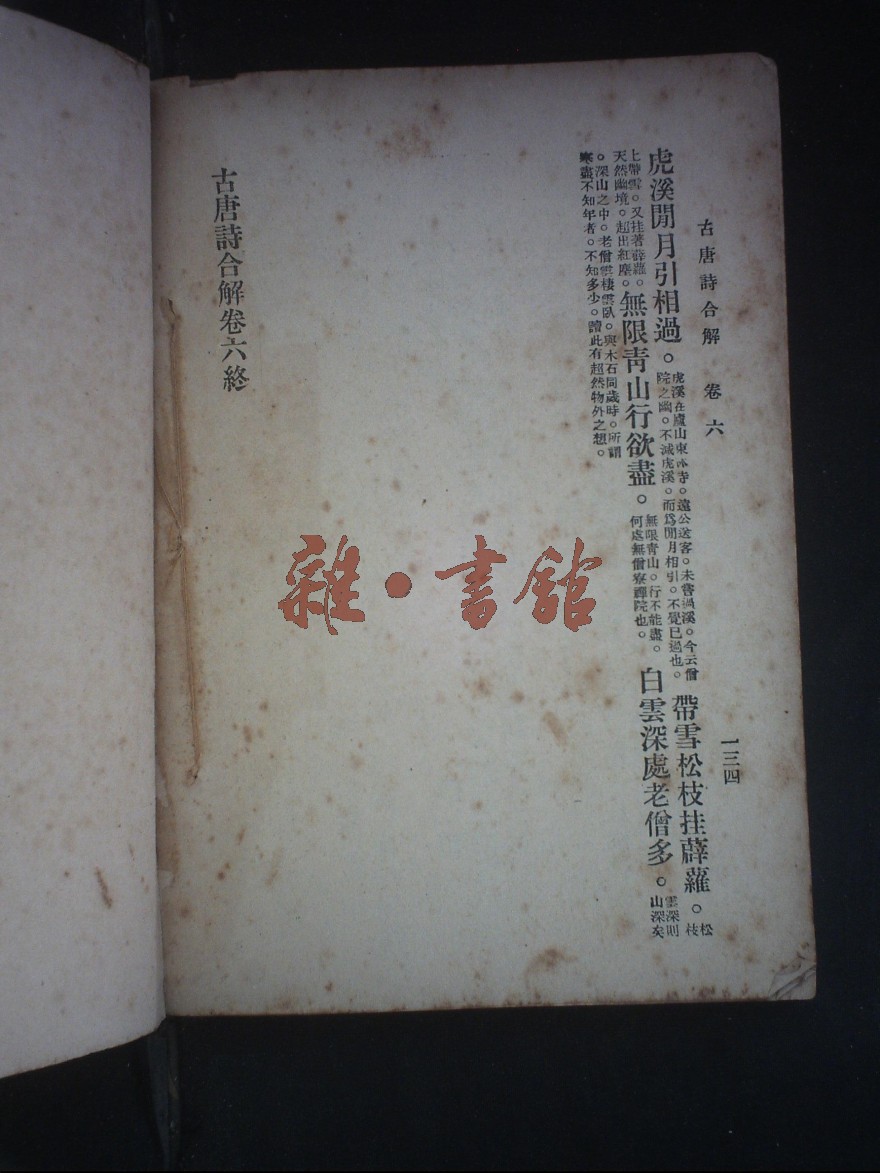 古唐詩合解 卷六
一三四
虎溪閒月引相過。虎溪在廬山東林寺。遠公送客。未嘗過溪。今云僧院之幽。不減虎溪。而爲閒月相引。不覺已過也。帶雪松枝挂薜蘿。松枝
上帶雪。又挂著薜蘿。天然幽境。超出紅塵。無限青山行欲盡。無限青山。行不能盡。何處無僧寮禪院也。白雲深處老僧多。雲深則山深矣
。深山之中。老僧雲棲雲臥。與木石同歲時。所謂寒盡不知年者。不知多少。讀此有超然物外之想。
古唐詩合解卷六終
雜·書館